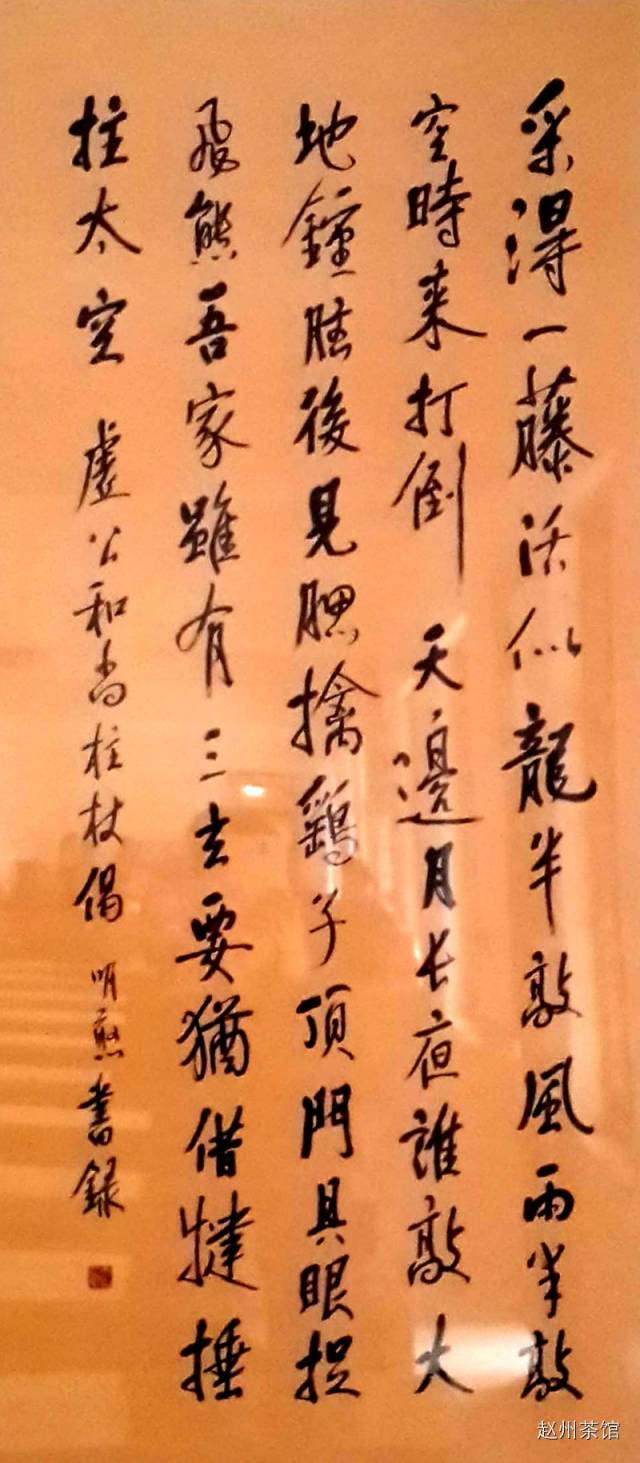 采得一藤活似龍半敲風雨半敲
空時来打倒 天邊月长夜誰敲大
地鐘腦後見腮擒鷂子頂門具眼捉
飛熊吾家雖有三玄要猶借犍捶
拄太空 虛公和尚柱杖偈 明書録
赵州茶馆